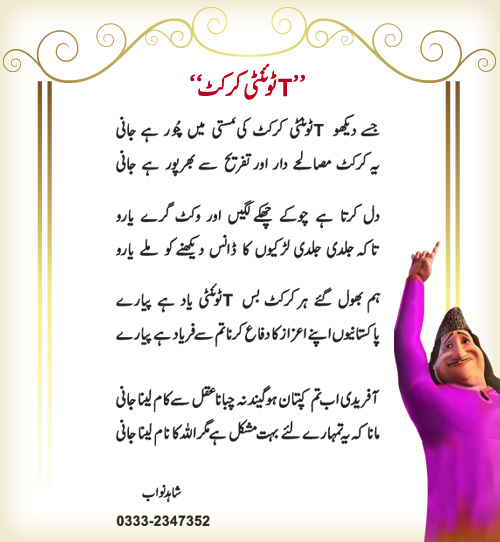 ”Tٹوئنٹی کرکٹ“
جسے دیکھو Tٹوئنٹی کرکٹ کی مستی میں چُور ہے جانی
یہ کرکٹ مصالحے دار اور تفریح سے بھرپور ہے جانی
دل کرتا ہے چوکے چھکے لگیں اور وکٹ گرے یارو
تاکہ جلدی جلدی لڑکیوں کا ڈانس دیکھنے کو ملے یارو
ہم بھول گئے ہر کرکٹ بس Tٹوئنٹی یاد ہے پیارے
پاکستانیوں اپنے اعزاز کا دفاع کرنا تم سے فریاد ہے پیارے
آفریدی اب تم کپتان ہو گیند نہ چبانا عقل سے کام لینا جانی
مانا کہ یہ تمہارے لئے بہت مشکل ہے مگر اللہ کا نام لینا جانی
شاہد نواب
0333-2347352